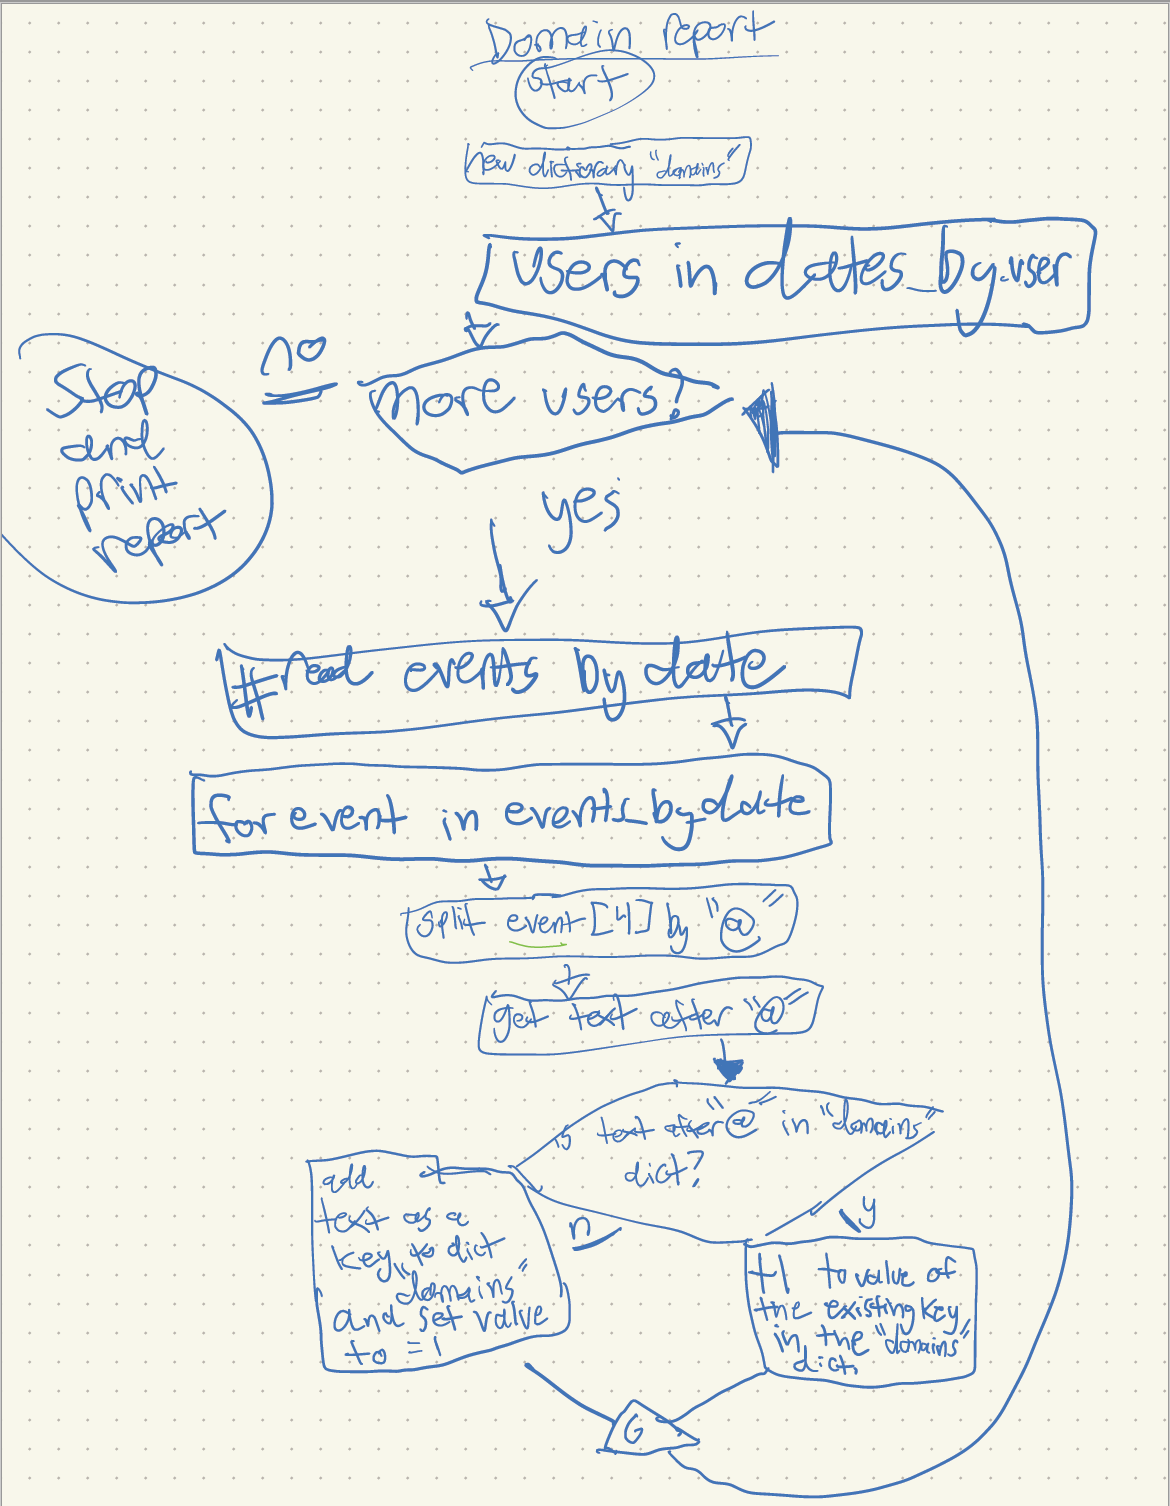 Domain report
start
new dictionary "domains"
users in dates_by-user
no
more users?
Stop
and
print
report
yes
#read events by date
for event in events_by_date
split event [4] by "@"
get text after "@"
is text after "@" in "domains"
dict?
add
text as a
key to dict
"domains"
and set value
to = 1
n
y
+1 to value of
the existing key
in the "domains"
dict.
G